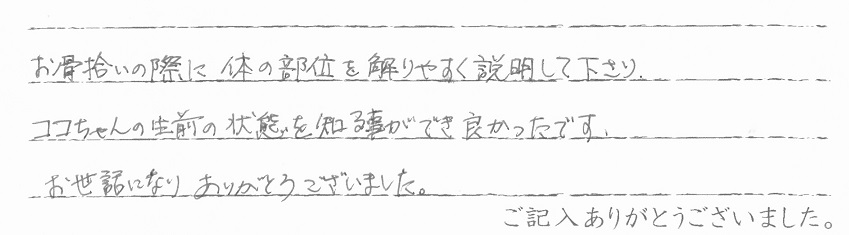 お骨拾いの際に体の部位を解りやすく説明して下さり、
ココちゃんの生前の状態を知る事ができ良かったです。
お世話になりありがとうございました。
ご記入ありがとうございました。